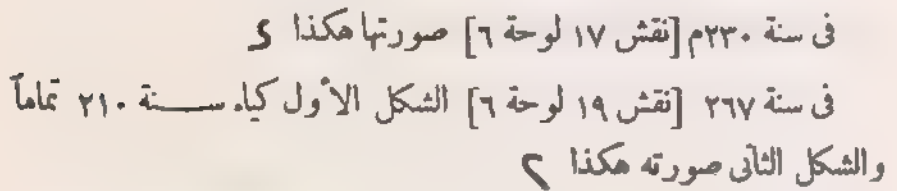 فى سنة ٢٣٠م [نقش ١٧ لوحة ٦] صورتها هكذا
فى سنة ٢٦٧ [نقش ١٩ لوحة ٦] الشكل الأول كياء ســـنة ٢١٠ تماماً
والشكل الثانى صورته هكذا